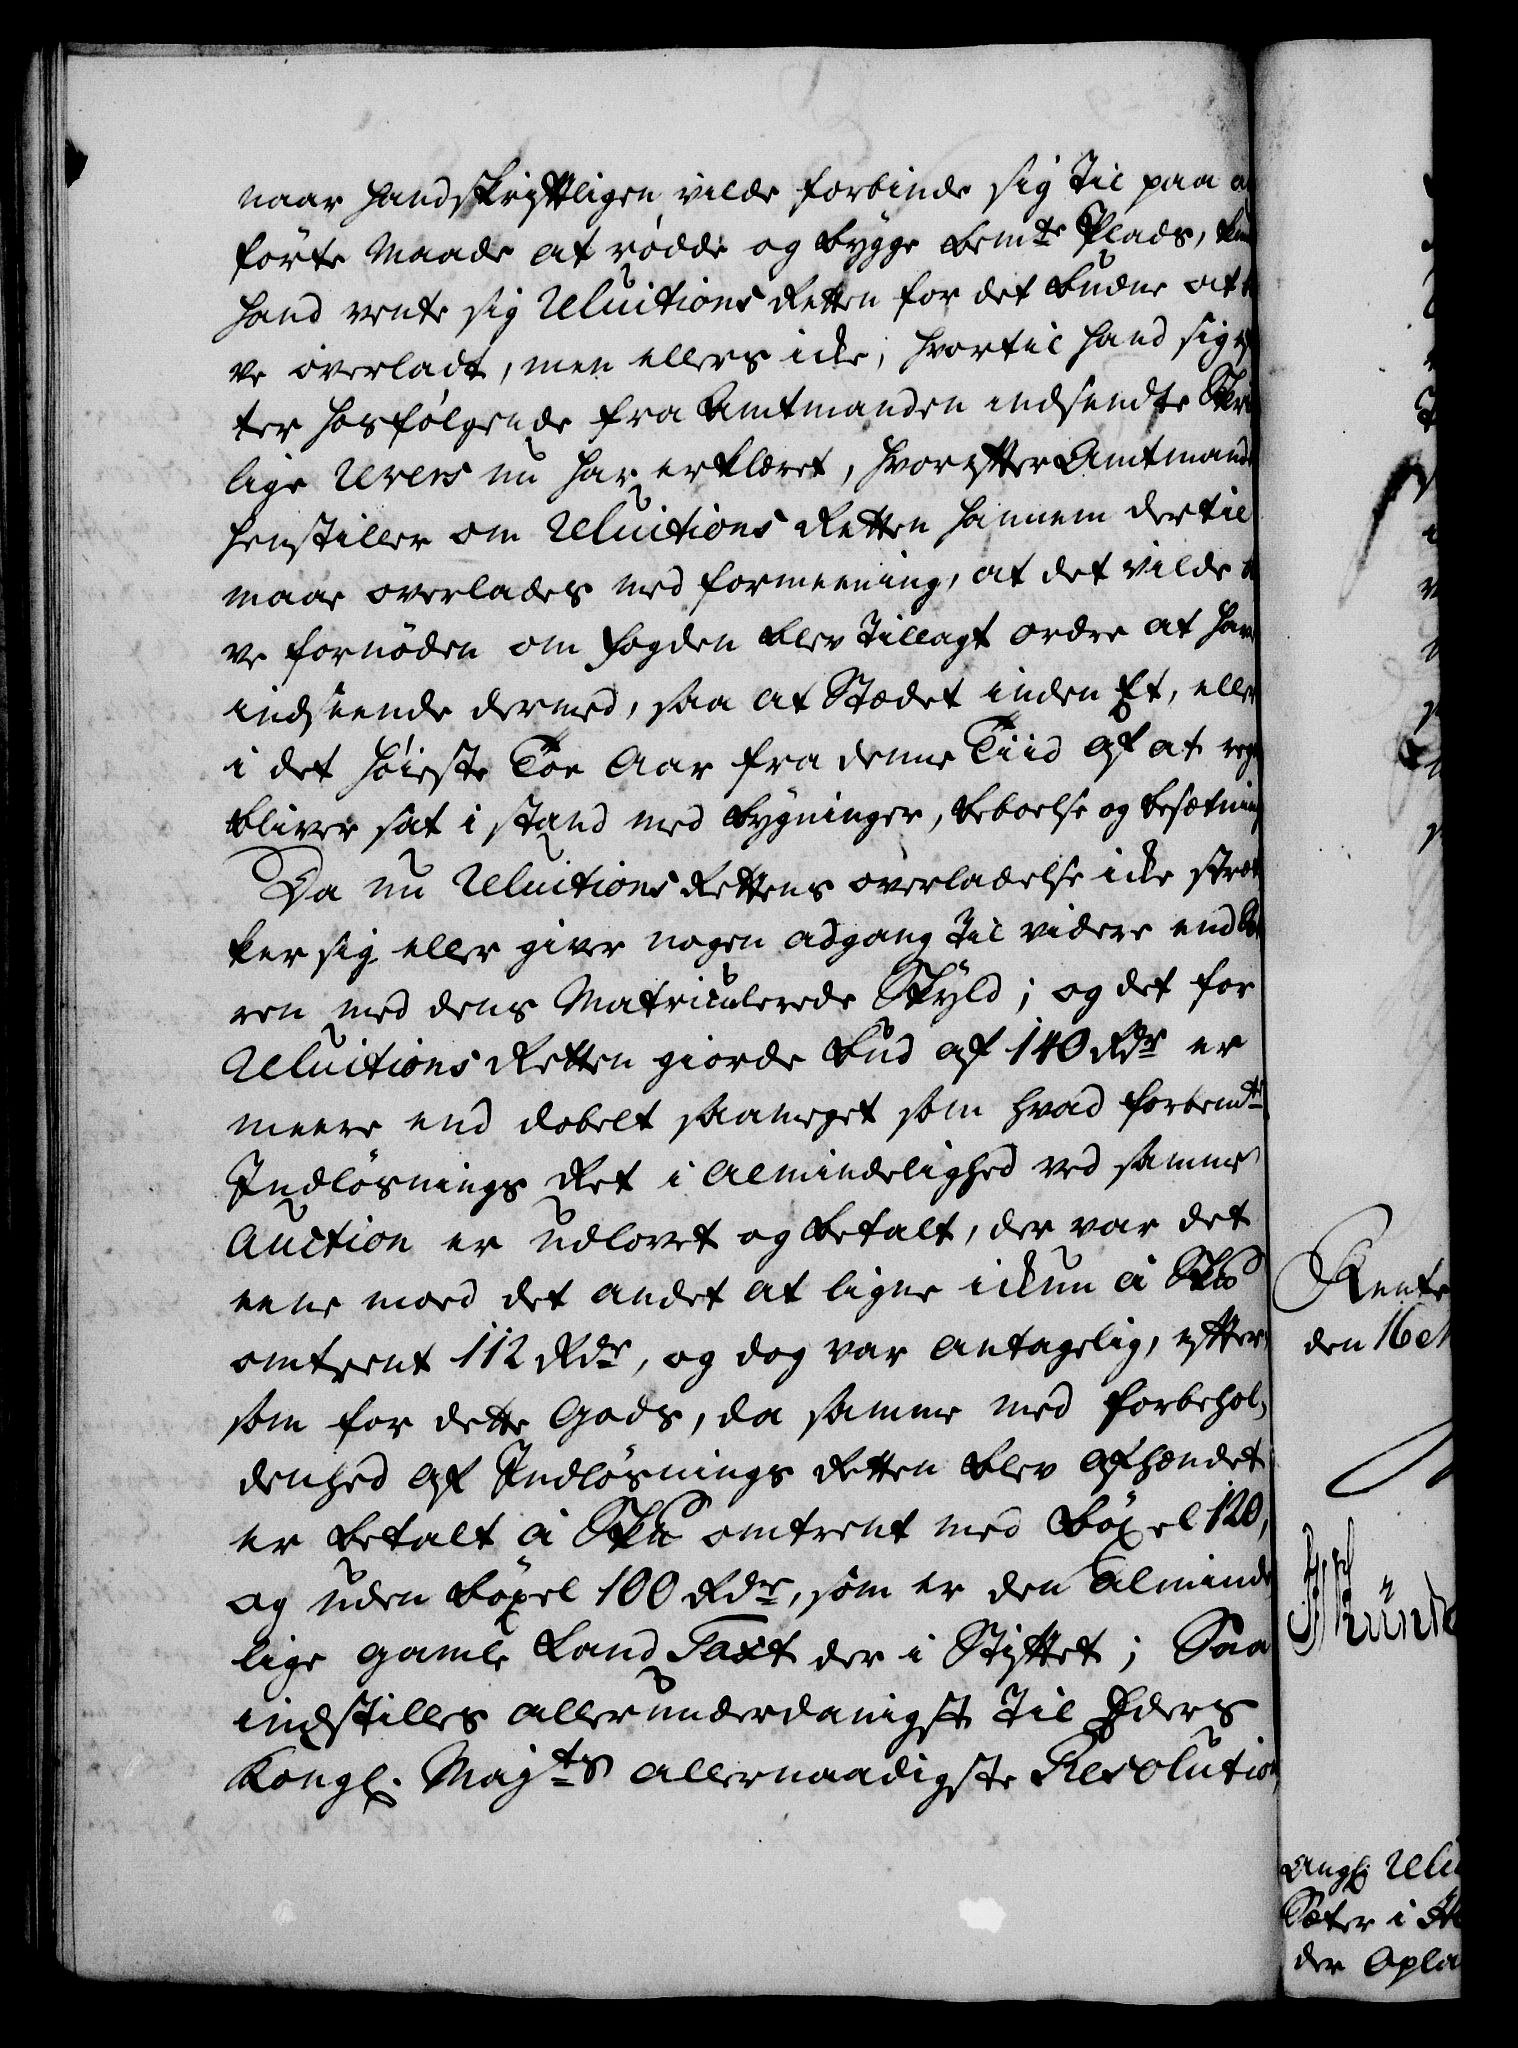 naar hand skriftligen vilde forbinde sig til paa a
förte Maade at rødde og bygge bemte Plads, kun
hand vente sig Reluitions Retten for det budne at b
ve overladt, men ellers icke, hvortil hand sig ef
ter hosfølgende fra Amtmanden indsendte Skri
lige Revers nu har erklæret, hvorefter Amtmand
henstiller om Reluitions Retten hannem dertil
maae overlades med formeening, at det vilde b
ve fornøden om fogden blev tillagt ordre at hav
indseende dermed, saa at Stædet inden Et, eller
i det høieste Toe Aar fra denne Tiid af at reg
bliver sat i stand med bygninger, beboelse og besætning
Da nu Reluitions Rettens overladelse icke stræk
ker sig eller giver nogen adgang til videre end
ren med dens Matriculerede Skyld; og det for
Reluitions Retten giorde bud af 140 Rdr er
meere end dobelt saameget som hvad forbemte
Indløsnings Ret i Almindelighed ved samme
Auction er udlovet og betalt, der var det
eene moed det andet at ligne ickun à Skd
omtrent 112 Rdr, og dog var antagelig, efter
som for dette Gods, da samme med forbehol,
denhed af Indløsnings Retten blev afhændet
er betalt à Skd omtrent med Böxel 120,
og uden Böxel 100 Rdr, som er den almind
lige gamle Land Taxt der i Stiftet; Saa
indstilles allerunderdanigst til Eders
Kongl. Majts allernaadigste Resolution
Rente
den 16
Angl. Relu
Sæter i
der Opla